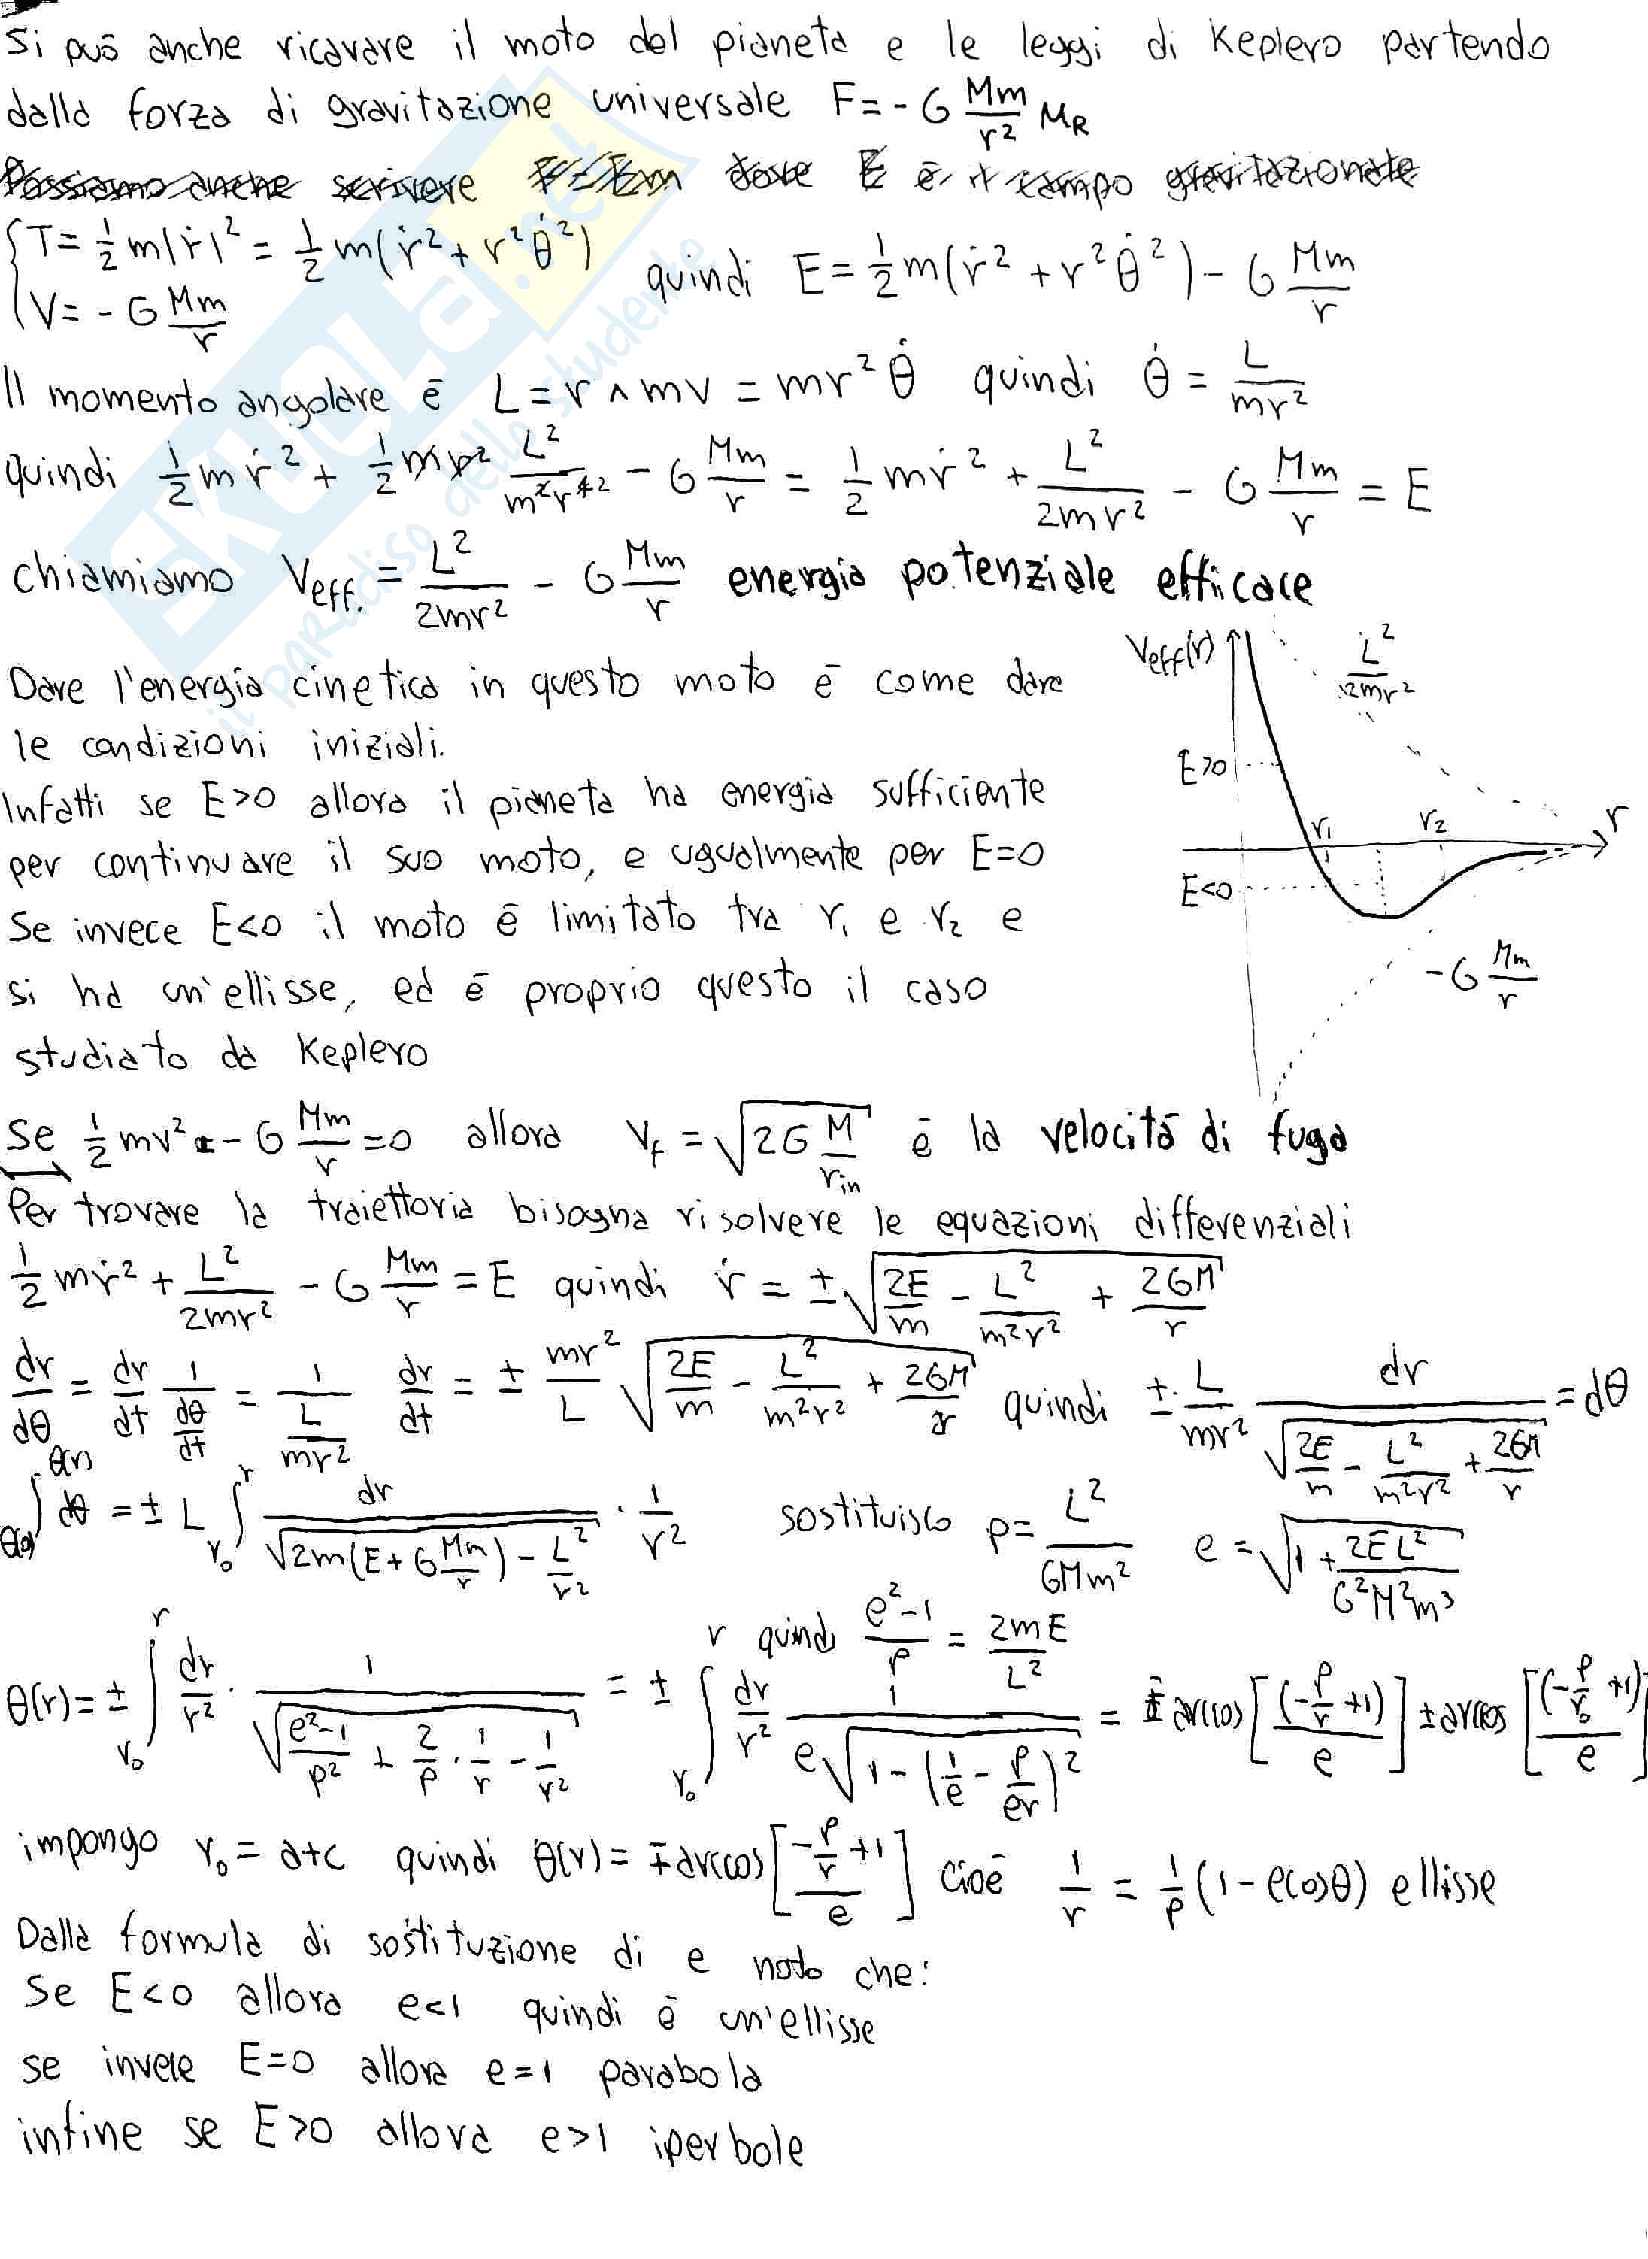 Si può anche ricavare il moto del pianeta e le leggi di Keplero partendo
dalla forza di gravitazione universale F = - G Mm/r² μ_R
Possiamo anche scrivere dove E è il campo gravitazionale
{ T = 1/2 m|ṙ|² = 1/2 m(ṙ² + r²θ̇²)
V = - G Mm/r quindi E = 1/2 m(ṙ² + r²θ̇²) - G Mm/r
Il momento angolare è L = r ∧ mv = mr²θ̇ quindi θ̇ = L/mr²
quindi 1/2 mṙ² + 1/2 mr² L²/m²r⁴ - G Mm/r = 1/2 mṙ² + L²/2mr² - G Mm/r = E
chiamiamo Veff. = L²/2mr² - G Mm/r energia potenziale efficace
Dare l'energia cinetica in questo moto è come dare
le condizioni iniziali.
Infatti se E>0 allora il pianeta ha energia sufficiente
per continuare il suo moto, e ugualmente per E=0
Se invece E<0 il moto è limitato tra r₁ e r₂ e
si ha un'ellisse, ed è proprio questo il caso
studiato da Keplero
Veff(r)
L²/2mr²
E>0
r₁ r₂ r
E<0
-G Mm/r
Se 1/2 mv² - G Mm/r = 0 allora V_f = √(2G M/r_in) è la velocità di fuga
Per trovare la traiettoria bisogna risolvere le equazioni differenziali
1/2 mṙ² + L²/2mr² - G Mm/r = E quindi ṙ = ± √(2E/m - L²/m²r² + 2GM/r)
dr/dθ = dr/dt 1/(dθ/dt) = 1/(L/mr²) dr/dt = ± mr²/L √(2E/m - L²/m²r² + 2GM/r) quindi ± L/mr² dr/√(2E/m - L²/m²r² + 2GM/r) = dθ
∫_θ(r₀)^θ(r) dθ = ± L ∫_r₀^r dr/√(2m(E + G Mm/r) - L²/r²) · 1/r² sostituisco p = L²/GMm² e = √(1 + 2EL²/G²M²m³)
quindi (e²-1)/p = 2mE/L²
θ(r) = ± ∫_r₀^r dr/r² · 1/√((e²-1)/p² + 2/p · 1/r - 1/r²) = ± ∫_r₀^r dr/r² 1/(e√(1 - (1/e - p/er)²)) = ∓ arccos[(-p/r + 1)/e] ± arccos[(-p/r₀ + 1)/e]
impongo r₀ = a+c quindi θ(r) = ∓ arccos[(-p/r + 1)/e] cioè 1/r = 1/p (1 - e cosθ) ellisse
Dalla formula di sostituzione di e noto che:
Se E<0 allora e<1 quindi è un'ellisse
se invece E=0 allora e=1 parabola
infine se E>0 allora e>1 iperbole
SKUOLA.net
il paradiso dello studente